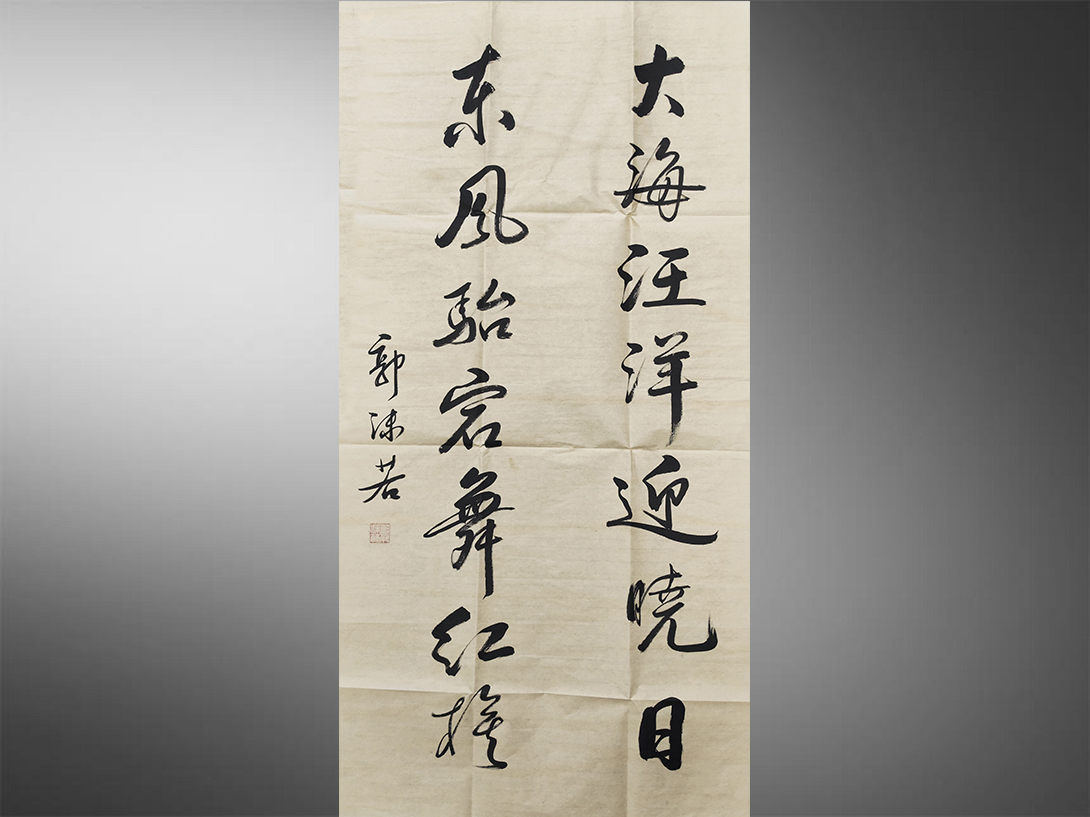 大海汪洋迎晓日
东风骀宕舞红旗
郭沫若